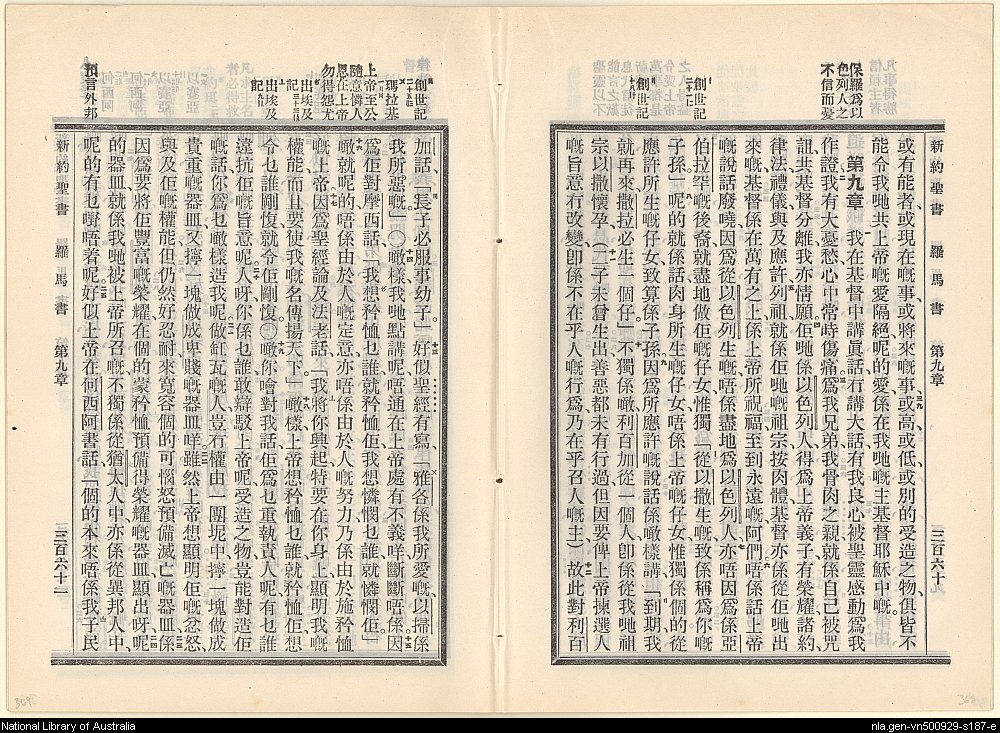 新約聖書 羅馬書 第九章 三百六十九
或有能者或現在嘅事或將來嘅事或高或低或別的受造之物俱皆不
能令我哋共上帝嘅愛隔絕呢的愛係在我哋嘅主基督耶穌中嘅。
第九章 我在基督中講眞話冇講大話有我良心被聖靈感動爲我
作證我有大憂愁心中常時傷痛爲我兄弟我骨肉之親就係自己被咒
詛共基督分離我亦情願佢哋係以色列人得爲上帝義子有榮耀諸約
律法禮儀與及應許列祖就係佢哋嘅祖宗按肉體基督亦係從佢哋出
來嘅基督係在萬有之上係上帝所祝福至到永遠嘅阿們唔係話上帝
嘅說話廢曉因爲從以色列生嘅唔係盡地爲以色列人亦唔因爲係亞
伯拉罕嘅後裔就盡地做佢嘅仔女惟獨「從以撒生嘅致係稱爲你嘅
子孫」呢的就係話肉身所生嘅仔女唔係上帝嘅仔女惟獨係個的從
應許所生嘅仔女致算係子孫因爲所應許嘅說話係噉樣講「到期我
就再來撒拉必生一個仔」不獨係噉利百加從一個人卽係從我哋祖
宗以撒懷孕、(二子未曾生出善惡都未有行過但因要俾上帝揀選人
嘅旨意冇改變卽係不在乎人嘅行爲乃在乎召人嘅主)故此對利百
保羅爲以
色列人之
不信而憂
創世記
創世記
加話、「長子必服事幼子」好似聖經有寫「雅各係我所愛嘅以掃係
我所惡嘅」〇噉樣我哋點講呢唔通在上帝處有不義咩斷斷唔係因
爲佢對摩西話、「我想矜恤乜誰就矜恤佢我想憐憫乜誰就憐憫佢」
噉就呢的唔係由於人嘅定意亦唔係由於人嘅努力乃係由於施矜恤
嘅上帝因爲聖經論及法老話、「我將你興起特要在你身上顯明我嘅
權能而且要使我嘅名傳揚天下」噉樣上帝想矜恤乜誰就矜恤佢想
令乜誰剛愎就令佢剛愎〇噉你會對我話佢爲乜重執責人呢有乜誰
違抗佢嘅旨意呢人呀你係乜誰敢辯駁上帝呢受造之物豈能對造佢
嘅話你爲乜噉樣造我呢做缸瓦嘅人豈冇權由一團坭中擰一塊做成
貴重嘅器皿又擰一塊做成卑賤嘅器皿咩雖然上帝想顯明佢嘅忿怒
與及佢嘅權能但仍然好忍耐來寬容個的可惱怒預備滅亡嘅器皿係
因爲要將佢豐富嘅榮耀在個的蒙矜恤預備得榮耀嘅器皿顯出呀呢
的器皿就係我哋被上帝所召嘅不獨係從猶太人中亦係從異邦人中
呢的有乜嘢唔着呢好似上帝在何西阿書話「個的本來唔係我子民
新約聖書 羅馬書 第九章 三百六十二
創世記
瑪拉基
上帝至公
隨意憐人
恩在上帝
勿得怨尤
出埃及
記
出埃及
記
預言外邦
National Library of Australia
nla.gen-vn500929-s187-e